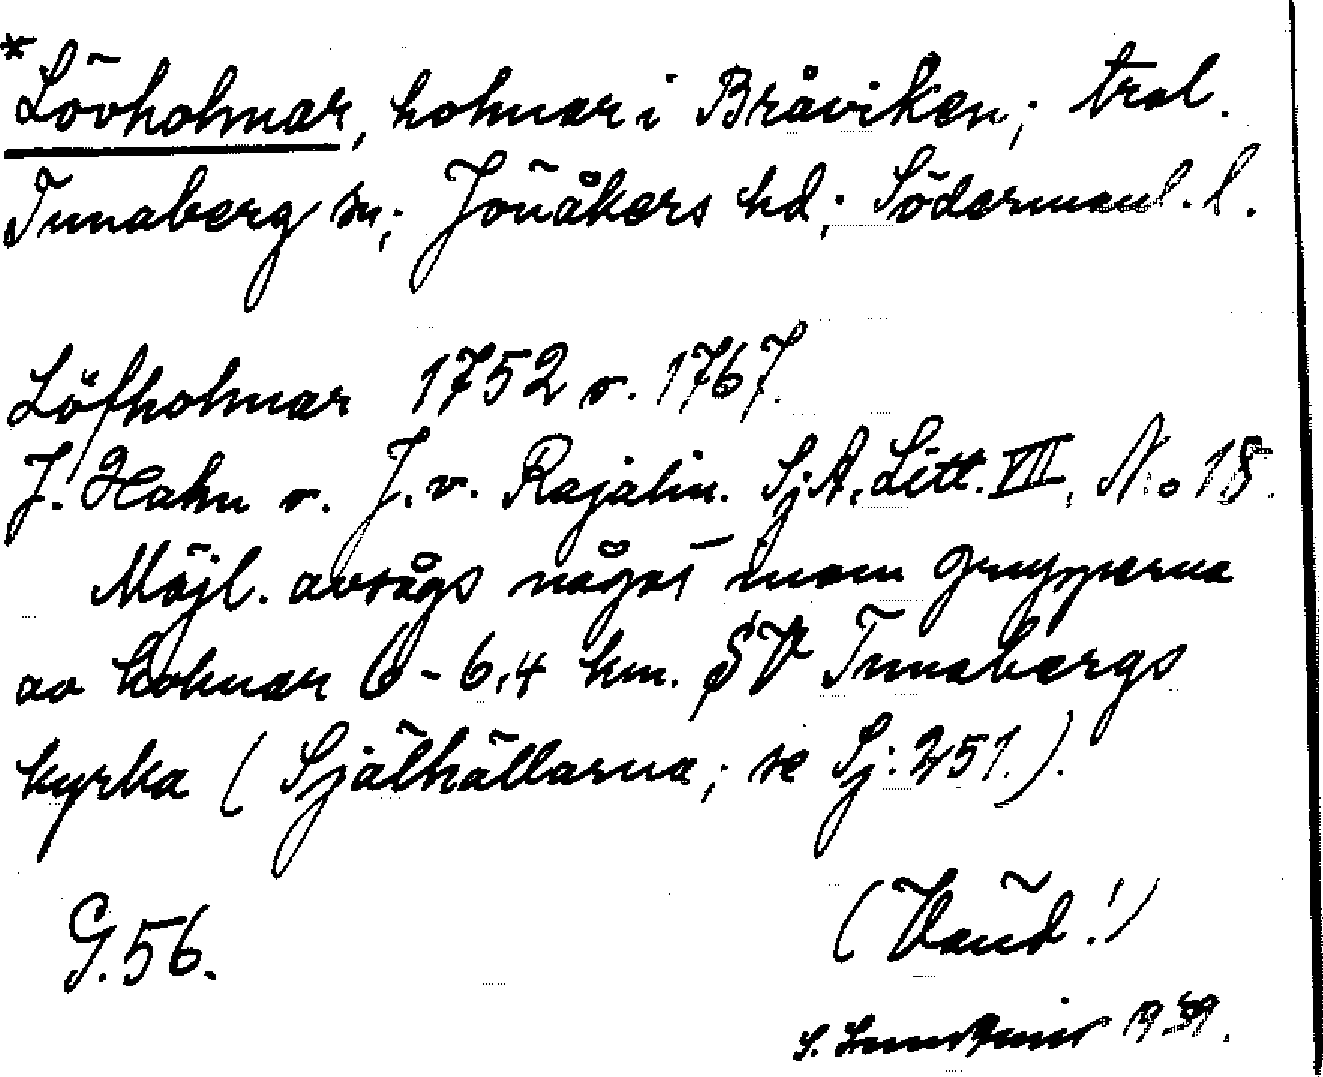 *Lövholmar, holmar i Bråviken; trol.
Tunaberg sn; Jönåkers hd; Södermanl. l.
Löfholmar 1752 o. 1767.
J. Hahn o. J. v. Rajalin. Sj.A. Litt. VIII, No 18.
Möjl. avsågs något inom grupperna
av holmar 6-6,4 km. SV Tunabergs
kyrka (Själhällarna; se Sj: 251.).
G. 56.
(Vänd!)
S. 1939.